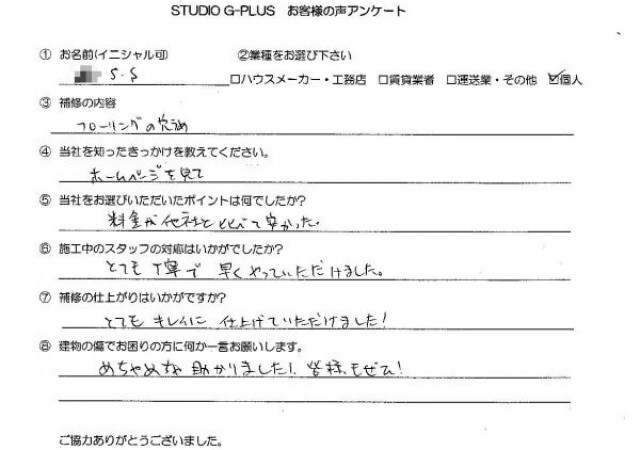 STUDIO G-PLUS お客様の声アンケート
① お名前(イニシャル可) ②業種をお選び下さい
S.S □ハウスメーカー・工務店 □賃貸業者 □運送業・その他 ☑個人
③ 補修の内容
フローリングの穴うめ
④ 当社を知ったきっかけを教えてください。
ホームページを見て
⑤ 当社をお選びいただいたポイントは何でしたか?
料金が他社とくらべて安かった。
⑥ 施工中のスタッフの対応はいかがでしたか?
とても丁寧で早くやっていただけました。
⑦ 補修の仕上がりはいかがですか?
とてもキレイに仕上げていただけました!
⑧ 建物の傷でお困りの方に何か一言お願いします。
めちゃめちゃ助かりました!皆様もぜひ!
ご協力ありがとうございました。